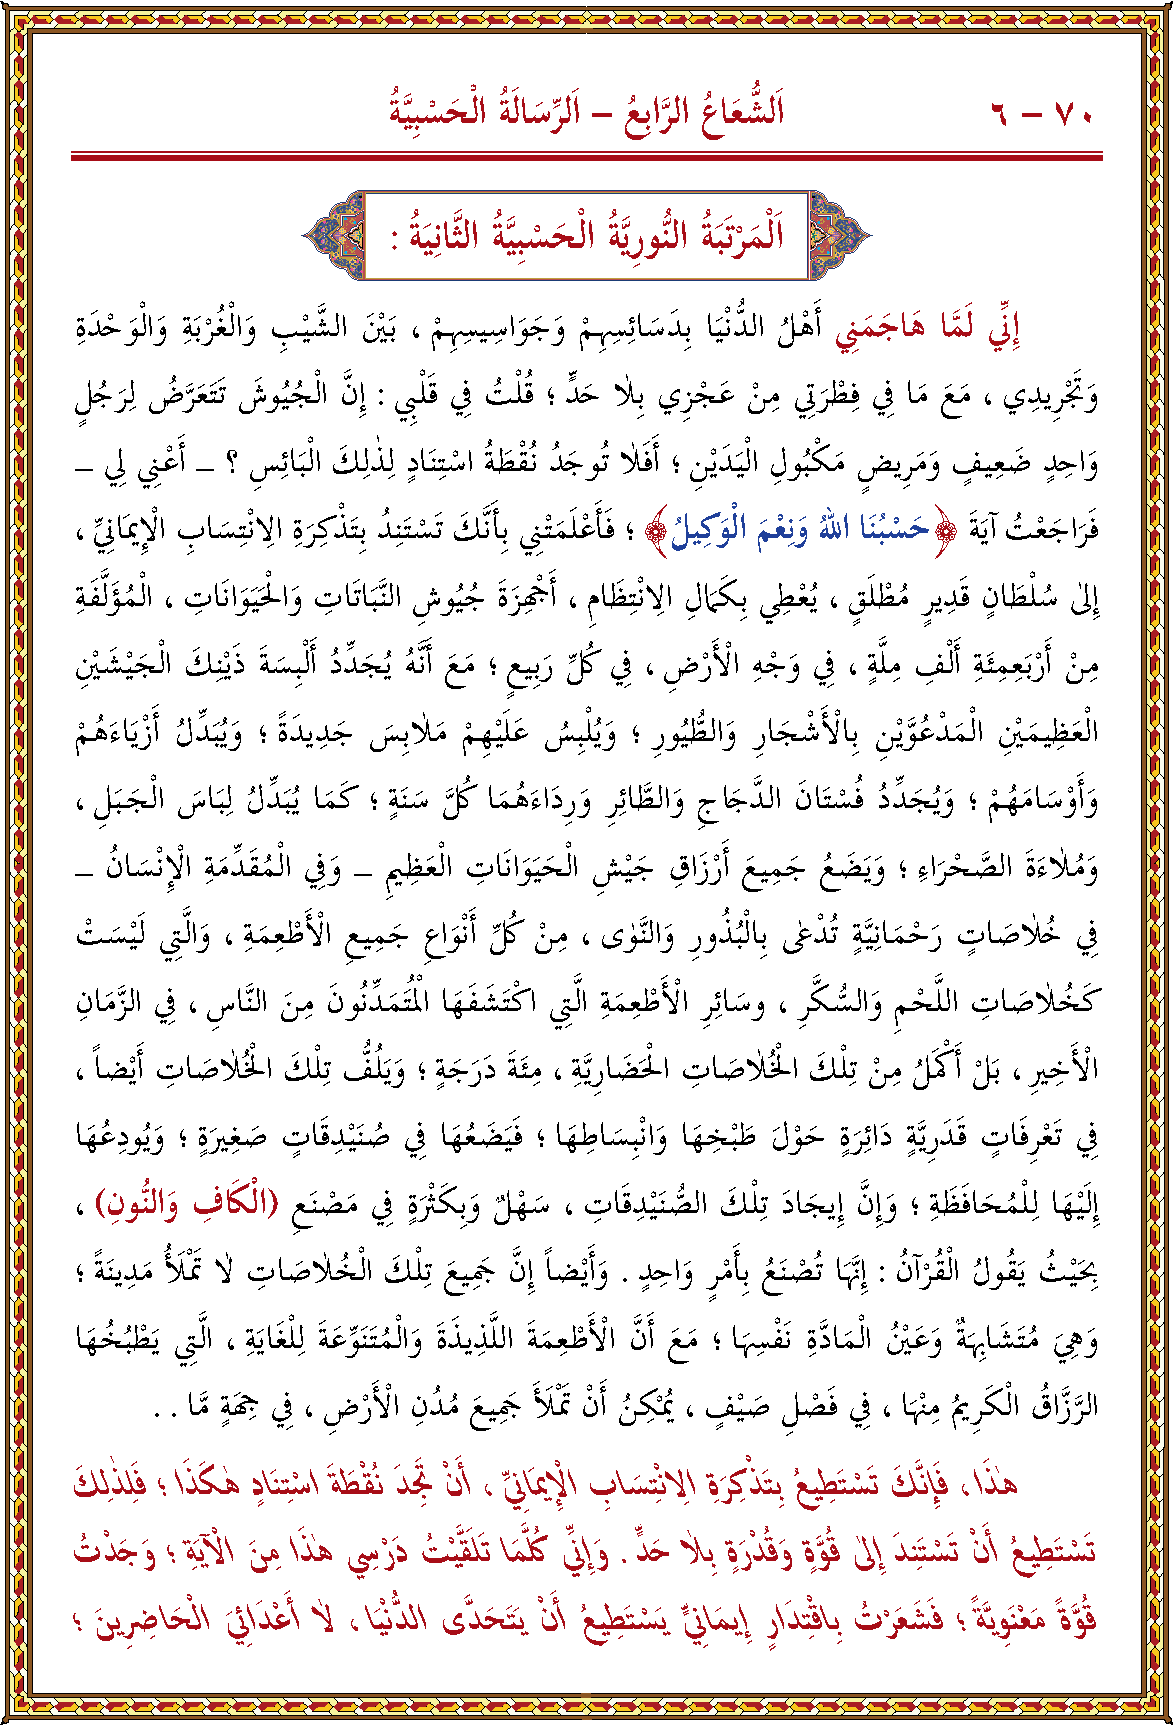 ٧٠ – ٦ اَلشُّعَاعُ الرَّابِعُ – اَلرِّسَالَةُ الْحَسْبِيَّةُ
اَلْمَرْتَبَةُ النُّورِيَّةُ الْحَسْبِيَّةُ الثَّانِيَةُ :
إِنِّي لَمَّا هَاجَمَنِي أَهْلُ الدُّنْيَا بِدَسَائِسِهِمْ وَجَوَاسِيسِهِمْ ، بَيْنَ الشَّيْبِ وَالْغُرْبَةِ وَالْوَحْدَةِ
وَتَجْرِيدِي ، مَعَ مَا فِي فِطْرَتِي مِنْ عَجْزِي بِلَا حَدٍّ ؛ قُلْتُ فِي قَلْبِي : إِنَّ الْجُيُوشَ تَتَعَرَّضُ لِرَجُلٍ
وَاحِدٍ ضَعِيفٍ وَمَرِيضٍ مَكْبُولِ الْيَدَيْنِ ؛ أَفَلَا تُوجَدُ نُقْطَةُ اسْتِنَادٍ لِذٰلِكَ الْبَائِسِ ؟ – أَعْنِي لِي –
فَرَاجَعْتُ آيَةَ ﴿حَسْبُنَا اللهُ وَنِعْمَ الْوَكِيلُ﴾ ؛ فَأَعْلَمَتْنِي بِأَنَّكَ تَسْتَنِدُ بِتَذْكِرَةِ الِانْتِسَابِ الْإِيمَانِيِّ ،
إِلٰى سُلْطَانٍ قَدِيرٍ مُطْلَقٍ ، يُعْطِي بِكَمَالِ الِانْتِظَامِ ، أَجْهِزَةَ جُيُوشِ النَّبَاتَاتِ وَالْحَيَوَانَاتِ ، الْمُؤَلَّفَةِ
مِنْ أَرْبَعِمِئَةِ أَلْفِ مِلَّةٍ ، فِي وَجْهِ الْأَرْضِ ، فِي كُلِّ رَبِيعٍ ؛ مَعَ أَنَّهُ يُجَدِّدُ أَلْبِسَةَ ذَيْنِكَ الْجَيْشَيْنِ
الْعَظِيمَيْنِ الْمَدْعُوَّيْنِ بِالْأَشْجَارِ وَالطُّيُورِ ؛ وَيُلْبِسُ عَلَيْهِمْ مَلَابِسَ جَدِيدَةً ؛ وَيُبَدِّلُ أَزْيَاءَهُمْ
وَأَوْسَامَهُمْ ؛ وَيُجَدِّدُ فُسْتَانَ الدَّجَاجِ وَالطَّائِرِ وَرِدَاءَهُمَا كُلَّ سَنَةٍ ؛ كَمَا يُبَدِّلُ لِبَاسَ الْجَبَلِ ،
وَمُلَاءَةَ الصَّحْرَاءِ ؛ وَيَضَعُ جَمِيعَ أَرْزَاقِ جَيْشِ الْحَيَوَانَاتِ الْعَظِيمِ – وَفِي الْمُقَدِّمَةِ الْإِنْسَانُ –
فِي خُلَاصَاتٍ رَحْمَانِيَّةٍ تُدْعٰى بِالْبُذُورِ وَالنَّوٰى ، مِنْ كُلِّ أَنْوَاعِ جَمِيعِ الْأَطْعِمَةِ ، وَالَّتِي لَيْسَتْ
كَخُلَاصَاتِ اللَّحْمِ وَالسُّكَّرِ ، وسَائِرِ الْأَطْعِمَةِ الَّتِي اكْتَشَفَهَا الْمُتَمَدِّنُونَ مِنَ النَّاسِ ، فِي الزَّمَانِ
الْأَخِيرِ ، بَلْ أَكْمَلُ مِنْ تِلْكَ الْخُلَاصَاتِ الْحَضَارِيَّةِ ، مِئَةَ دَرَجَةٍ ؛ وَيَلُفُّ تِلْكَ الْخُلَاصَاتِ أَيْضاً ،
فِي تَعْرِفَاتٍ قَدَرِيَّةٍ دَائِرَةٍ حَوْلَ طَبْخِهَا وَانْبِسَاطِهَا ؛ فَيَضَعُهَا فِي صُنَيْدِقَاتٍ صَغِيرَةٍ ؛ وَيُودِعُهَا
إِلَيْهَا لِلْمُحَافَظَةِ ؛ وَإِنَّ إِيجَادَ تِلْكَ الصُّنَيْدِقَاتِ ، سَهْلٌ وَبِكَثْرَةٍ فِي مَصْنَعِ (الْكَافِ وَالنُّونِ) ،
بِحَيْثُ يَقُولُ الْقُرْآنُ : إِنَّهَا تُصْنَعُ بِأَمْرٍ وَاحِدٍ . وَأَيْضاً إِنَّ جَمِيعَ تِلْكَ الْخُلَاصَاتِ لَا تَمْلَأُ مَدِينَةً ؛
وَهِيَ مُتَشَابِهَةٌ وَعَيْنُ الْمَادَّةِ نَفْسِهَا ؛ مَعَ أَنَّ الْأَطْعِمَةَ اللَّذِيذَةَ وَالْمُتَنَوِّعَةَ لِلْغَايَةِ ، الَّتِي يَطْبُخُهَا
الرَّزَّاقُ الْكَرِيمُ مِنْهَا ، فِي فَصْلِ صَيْفٍ ، يُمْكِنُ أَنْ تَمْلَأَ جَمِيعَ مُدُنِ الْأَرْضِ ، فِي جِهَةٍ مَّا . .
هٰذَا ، فَإِنَّكَ تَسْتَطِيعُ بِتَذْكِرَةِ الِانْتِسَابِ الْإِيمَانِيِّ ، أَنْ تَجِدَ نُقْطَةَ اسْتِنَادٍ هٰكَذَا ؛ فَلِذٰلِكَ
تَسْتَطِيعُ أَنْ تَسْتَنِدَ إِلٰى قُوَّةٍ وَقُدْرَةٍ بِلَا حَدٍّ . وَإِنِّي كُلَّمَا تَلَقَّيْتُ دَرْسِي هٰذَا مِنَ الْآيَةِ ؛ وَجَدْتُ
قُوَّةً مَعْنَوِيَّةً ؛ فَشَعَرْتُ بِاقْتِدَارٍ إِيمَانِيٍّ يَسْتَطِيعُ أَنْ يَتَحَدَّى الدُّنْيَا ، لَا أَعْدَائِيَ الْحَاضِرِينَ ؛